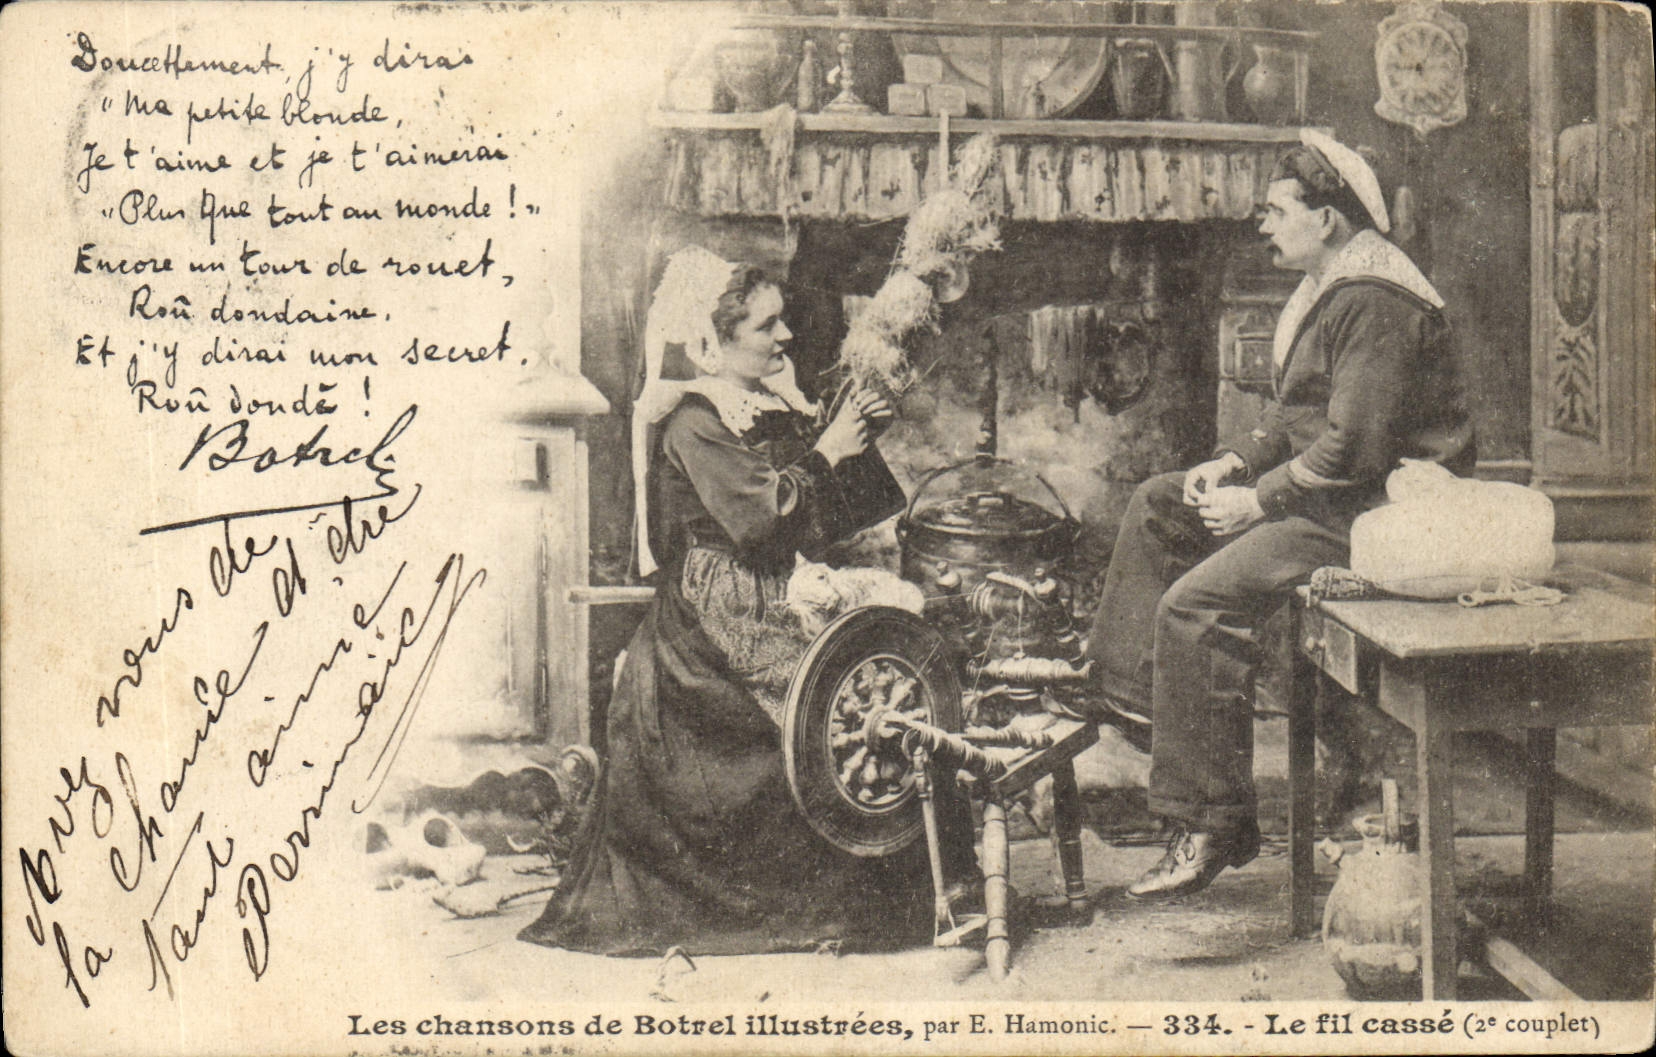 Doucettement, j'y dirai
"Ma petite blonde,
Je t'aime et je t'aimerai
"Plus que tout au monde ! "
Encore un tour de rouet,
Roû dondaine,
Et j'y dirai mon secret.
Roû dondé !
Botrel
Avez vous de
la chance d'être
tant aimé
Les chansons de Botrel illustrées, par E. Hamonic. — 334. - Le fil cassé (2e couplet)